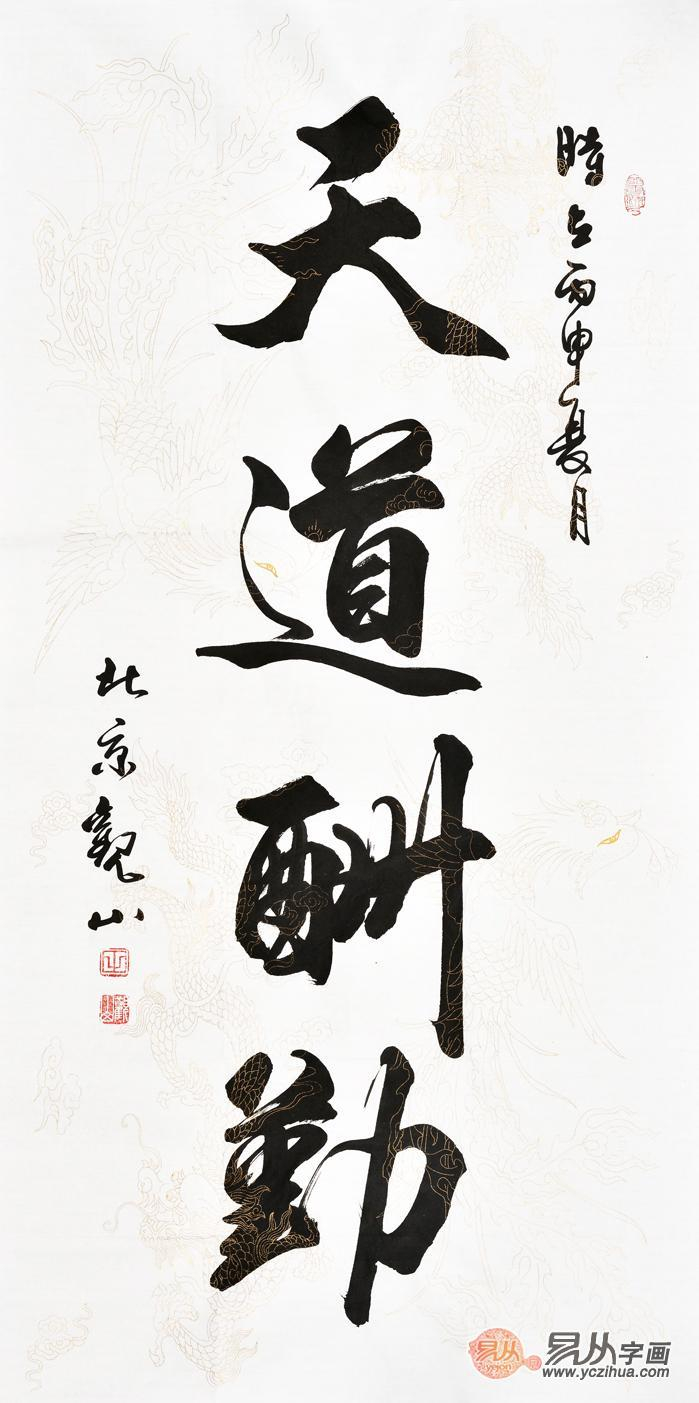 時在丙申夏月
天道酬勤
北京觀山
易从
易从字画
www.yczihua.com